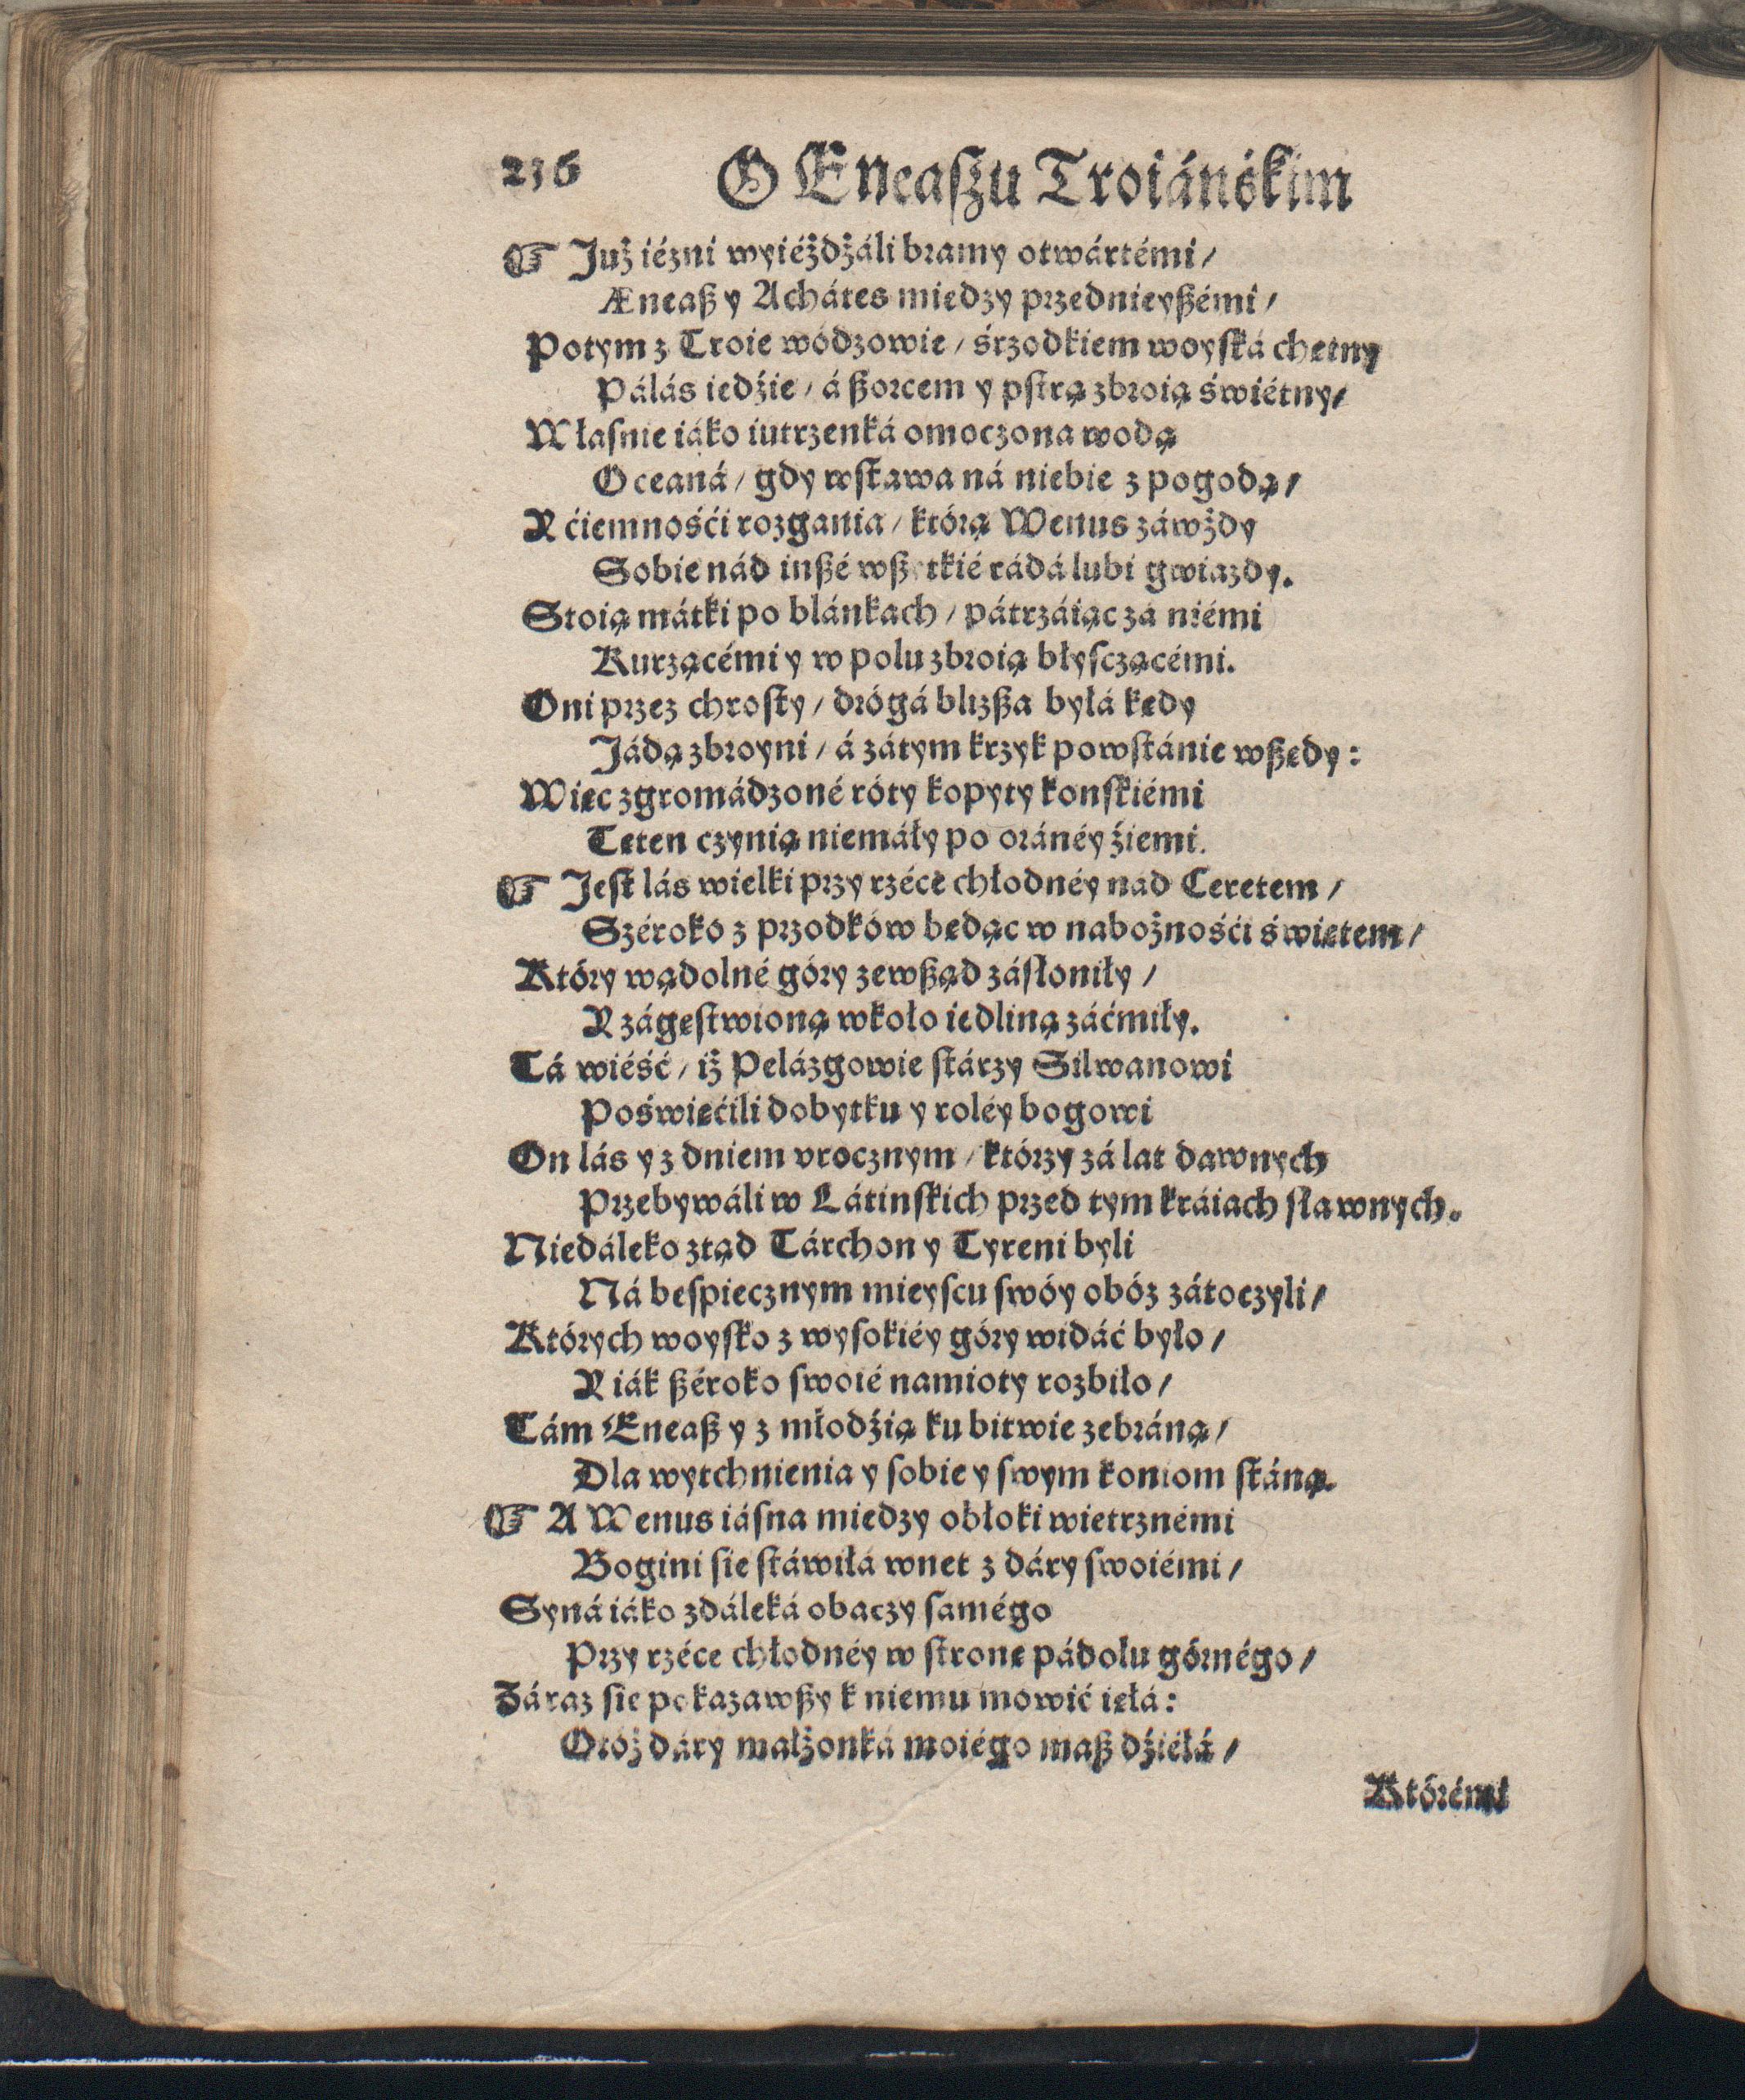 236 O Eneaſzu Troiáńſkim
☞ Już iézni wyiéżdżáli bramy otwártémi /
Æneaß y Achátes miedzy przednieyßémi /
Potym z Troie wódzowie / śrzodkiem woyſká chętny
Pálás iedźie / á ßorcem y pſtrą zbroią świétny /
Właſnie iáko iutrzenká omoczona wodą
Oceaná / gdy wſtawa ná niebie z pogodą /
Y ćiemnośći rozgania / którą Wenus záwżdy
Sobie nád inßé wßetkié rádá lubi gwiazdy.
Stoią mátki po blánkach / pátrzáiąc zá niémi
Kurzącémi y w polu zbroią błyſczącémi.
Oni przez chroſty / drógá blizßa byłá kędy
Jádą zbroyni / á zátym krzyk powſtánie wßędy :
Więc zgromádzoné róty kopyty konſkiémi
Tęten czynią niemáły po oránéy źiemi.
☞ Jeſt lás wielki przy rzéce chłodnéy nad Ceretem /
Széroko z przodków będąc w nabożnośći świętem /
Który wądolné góry zewßąd záſłoniły /
Y zágęſtwioną wkoło iedliną záćmiły.
Tá wiéść / iż Pelázgowie ſtárzy Silwanowi
Poświęćili dobytku y roléy bogowi
On lás y z dniem vrocznym / którzy zá lat dawnych
Przebywáli w Látinſkich przed tym kráiach ſławnych.
Niedáleko ztąd Tárchon y Tyreni byli
Ná beſpiecznym mieyſcu ſwóy obóz zátoczyli /
Których woyſko z wyſokiéy góry widáć było /
Y iák ßéroko ſwoié namioty rozbiło /
Tám Eneaß y z młodźią ku bitwie zebráną /
Dla wytchnienia y ſobie y ſwym koniom ſtáną.
☞ A Wenus iáſna miedzy obłoki wietrznémi
Bogini ſie ſtáwiłá wnet z dáry ſwoiémi /
Syná iáko zdáleká obaczy ſamégo
Przy rzéce chłodnéy w ſtronę pádołu górnégo /
Záraz ſie pokazawßy k niemu mowić ięłá :
Otóż dáry małżonká moiégo maß dźiéłá /
Którémi